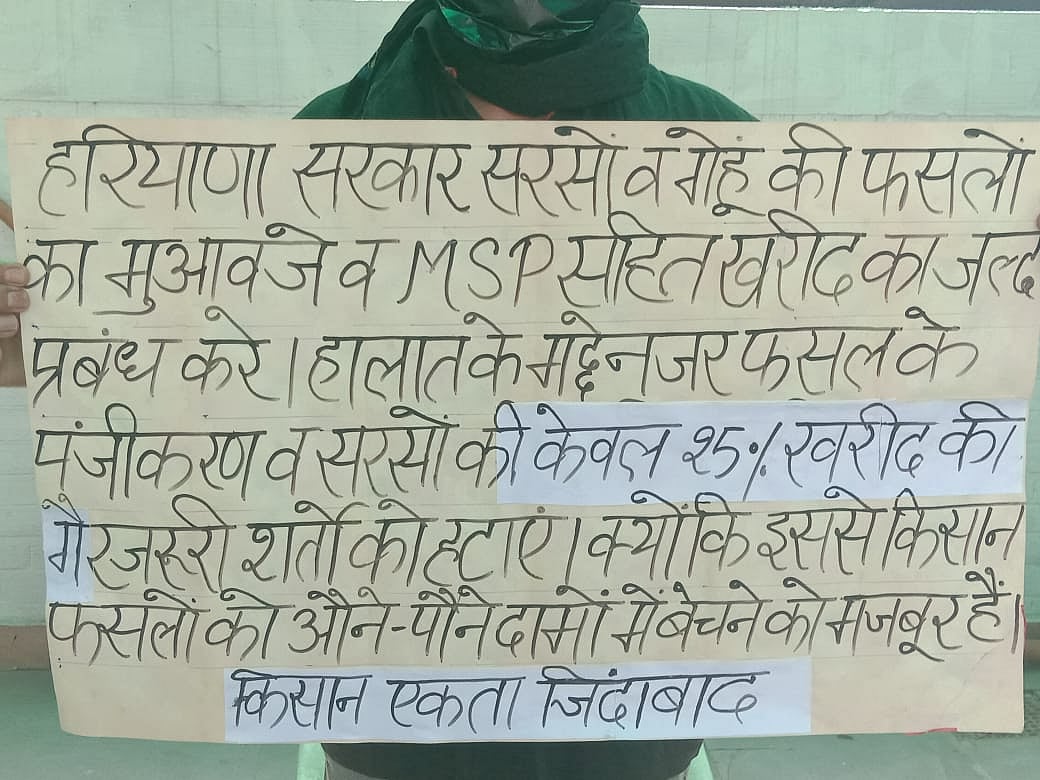 हरियाणा सरकार सरसों व गेहूं की फसलों
का मुआवजे व MSP सहित खरीद का जल्द
प्रबंध करे। हालात के मद्देनजर फसल के
पंजीकरण व सरसों की केवल 25% खरीद की
गैरजरूरी शर्तो को हटाएं। क्योंकि इससे किसान
फसलों को औने-पौने दामों में बेचने को मजबूर हैं।
किसान एकता जिंदाबाद